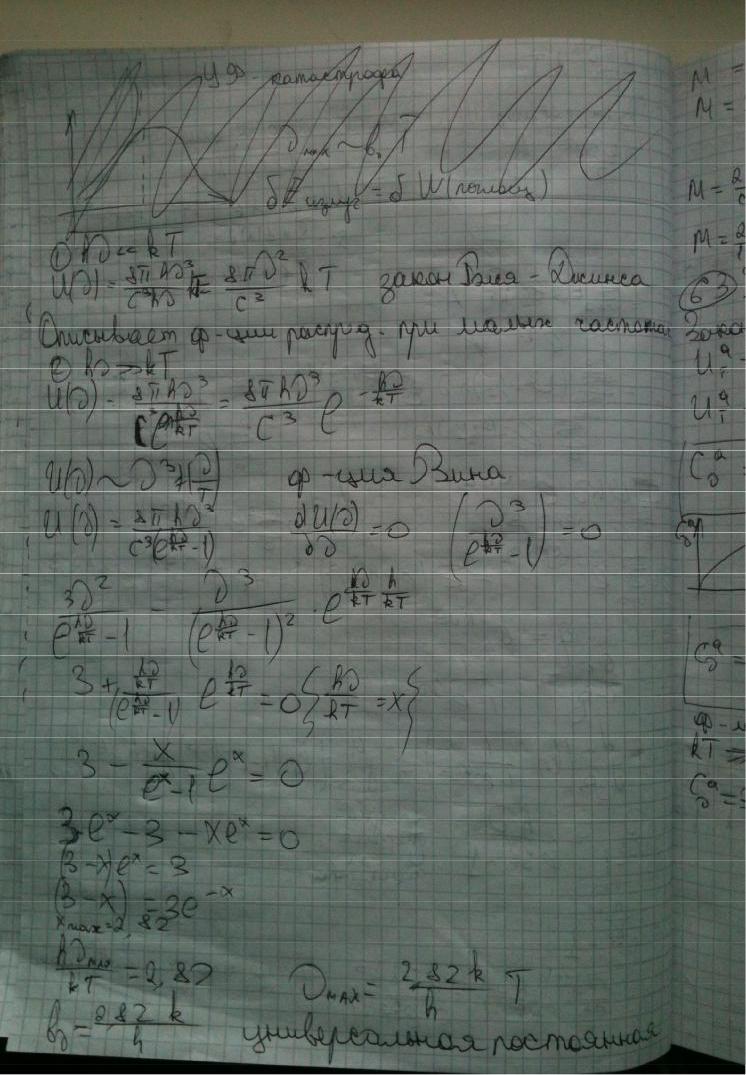 УФ - катастрофа
ν max ~ b₀ T
δE излуч = δW(поглощ)
① hν << kT
U(ν) = 8πhν³/c³hν kT = 8πν²/c³ kT закон Рэлея - Джинса
Описывает ф-ции распред. при малых частотах
② hν >> kT
U(ν) = 8πhν³/c³e^(hν/kT) = 8πhν³/c³ e^(-hν/kT)
U(ν) ~ ν³ f(ν/T) ф-ция Вина
U(ν) = 8πhν³/c³(e^(hν/kT) - 1) dU(ν)/dν = 0 (ν³/e^(hν/kT) - 1) = 0
3ν²/e^(hν/kT) - 1 - ν³/(e^(hν/kT) - 1)² · e^(hν/kT) h/kT
3 + hν/kT/(e^(hν/kT) - 1) e^(hν/kT) = 0 {hν/kT = x}
3 - x/e^x - 1 e^x = 0
3e^x - 3 - xe^x = 0
(3-x)e^x = 3
(3-x) = 3e^(-x)
x max = 2,82
hν max/kT = 2,82 ν MAX = 2,82 k/h T
b₀ = 2,82 k/h универсальная постоянная
M =
M =
M = 2/c
M = 2
63
Зако
U
U
C
ф-л
kT